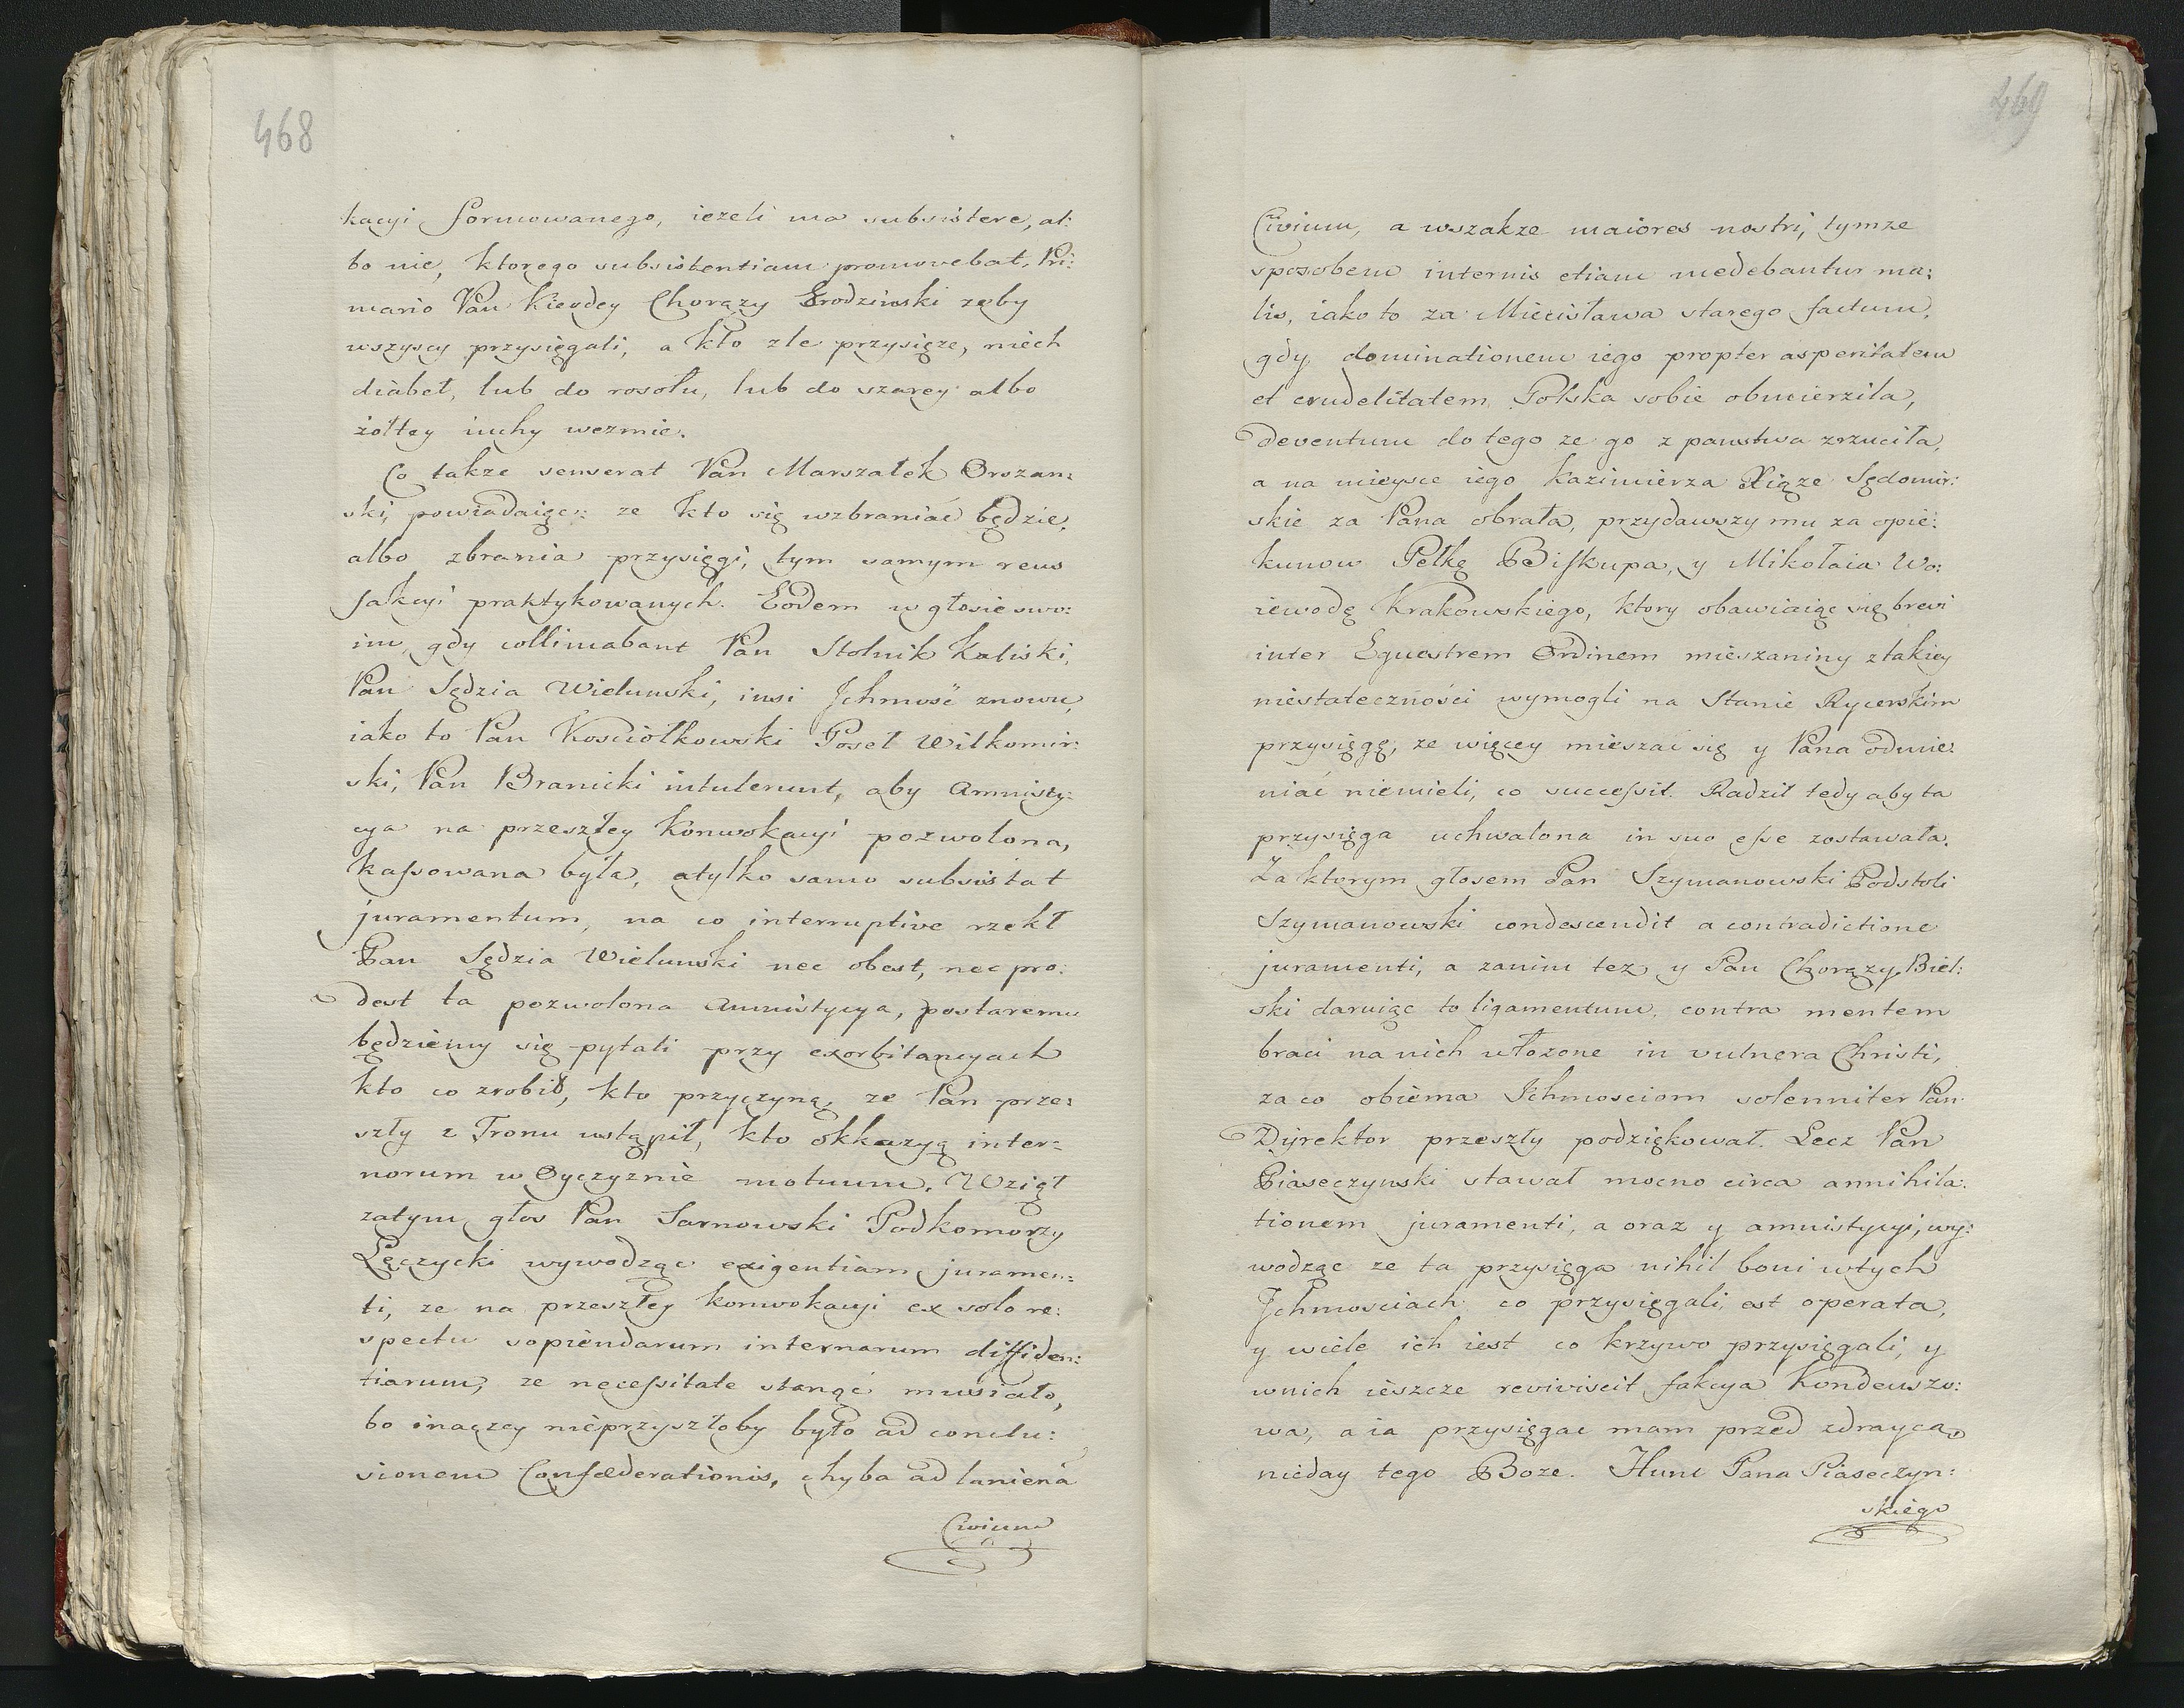 468
kacyi formowanego, ieżeli ma subsistere, al:
bo nie, ktorego subsistentiam promovebat. Pri:
mario Pan Kierdey Chorązy Grodzinski zeby
wszyscy przysięgali, a kto zle przysięze, niech
diabeł, lub do rosołu, lub do szarey albo
żołtey iuchy wezmie.
Co takze senserat Pan Marszałek Orszan:
ski, powiadaiąc: ze kto się wzbraniać będzie,
albo zbrania przysięgi, tym samym reus
fakcyi praktykowanych. Eodem w głosie swo:
im, gdy collimabant Pan Stolnik Kaliski,
Pan Sędzia Wielunski, insi Jchmość znowu,
iako to Pan Kościołkowski Poseł Wiłkomir:
ski, Pan Branicki intulerunt, aby Amnisty:
cya na przeszłey Konwokacyi pozwolona,
kassowana była, atylko samo subsistat
juramentum, na co interruptive rzekł
Pan Sędzia Wielunski nec obest, nec pro:
dest ta pozwolona Amnistycya, postaremu
będziemy się pytali przy exorbitancyach
kto co zrobił, kto przyczyną, ze Pan prze:
szły z Tronu ustąpił, kto okkazyą inter:
norum w Oyczyznie motuum. Wziął
zatym głos Pan Sarnowski Podkomorzy
Łęczycki wywodząc exigentiam juramen:
ti, ze na przeszłey konwokacyi ex solo re:
spectu sopiendarum internarum diffiden:
tiarum, ze necessitate stanąć musiało,
bo inaczey nieprzyszłoby było ad conclu:
sionem Confœderationis, chyba ad laniena
Civium
469
Civium, a wszakze maiores nostri, tymze
sposobem internis etiam medebantur ma:
lis, iako to za Miecisława starego factum,
gdy dominationem iego propter asperitatem
et crudelitatem Polska sobie obmierziła,
deventum do tego ze go z panstwa zrzuciła,
a na mieysce iego Kazimierza Xiąze Sędomir:
skie za Pana obrała, przydawszy mu za opie:
kunow Pełkę Biskupa, y Mikołaia Wo:
iewodę Krakowskiego, ktory obawiaiąc się brevi
inter Equestrem Ordinem mieszaniny z takiey
niestateczności wymogli na Stanie Rycerskim
przysięgę, ze więcey mieszać się y Pana odmie:
niać niemieli, co successit. Radził tedy aby ta
przysięga uchwalona in suo esse zostawała.
Za ktorym głosem Pan Szymanowski Podstoli
Szymanowski condescendit a contradictione
juramenti, a zanim tez y Pan Chorązy Biel:
ski daruiąc to ligamentum, contra mentem
braci na nich włozone in vulnera Christi,
za co obiema Ichmosciom solenniter Pan
Dyrektor przeszły podziękował. Lecz Pan
Piaseczynski stawał mocno circa annihila:
tionem juramenti, a oraz y amnistycyi, wy:
wodząc ze ta przysięga nihil boni wtych
Jchmosciach co przysięgali, est operata,
y wiele ich iest co krzywo przysięgali, y
wnich ieszcze reviviscit fakcya Kondeuszo:
wa, a ia przysięgac mam przed zdraycą,
nieday tego Boze. Hunc Pana Piaseczyn:
skiego